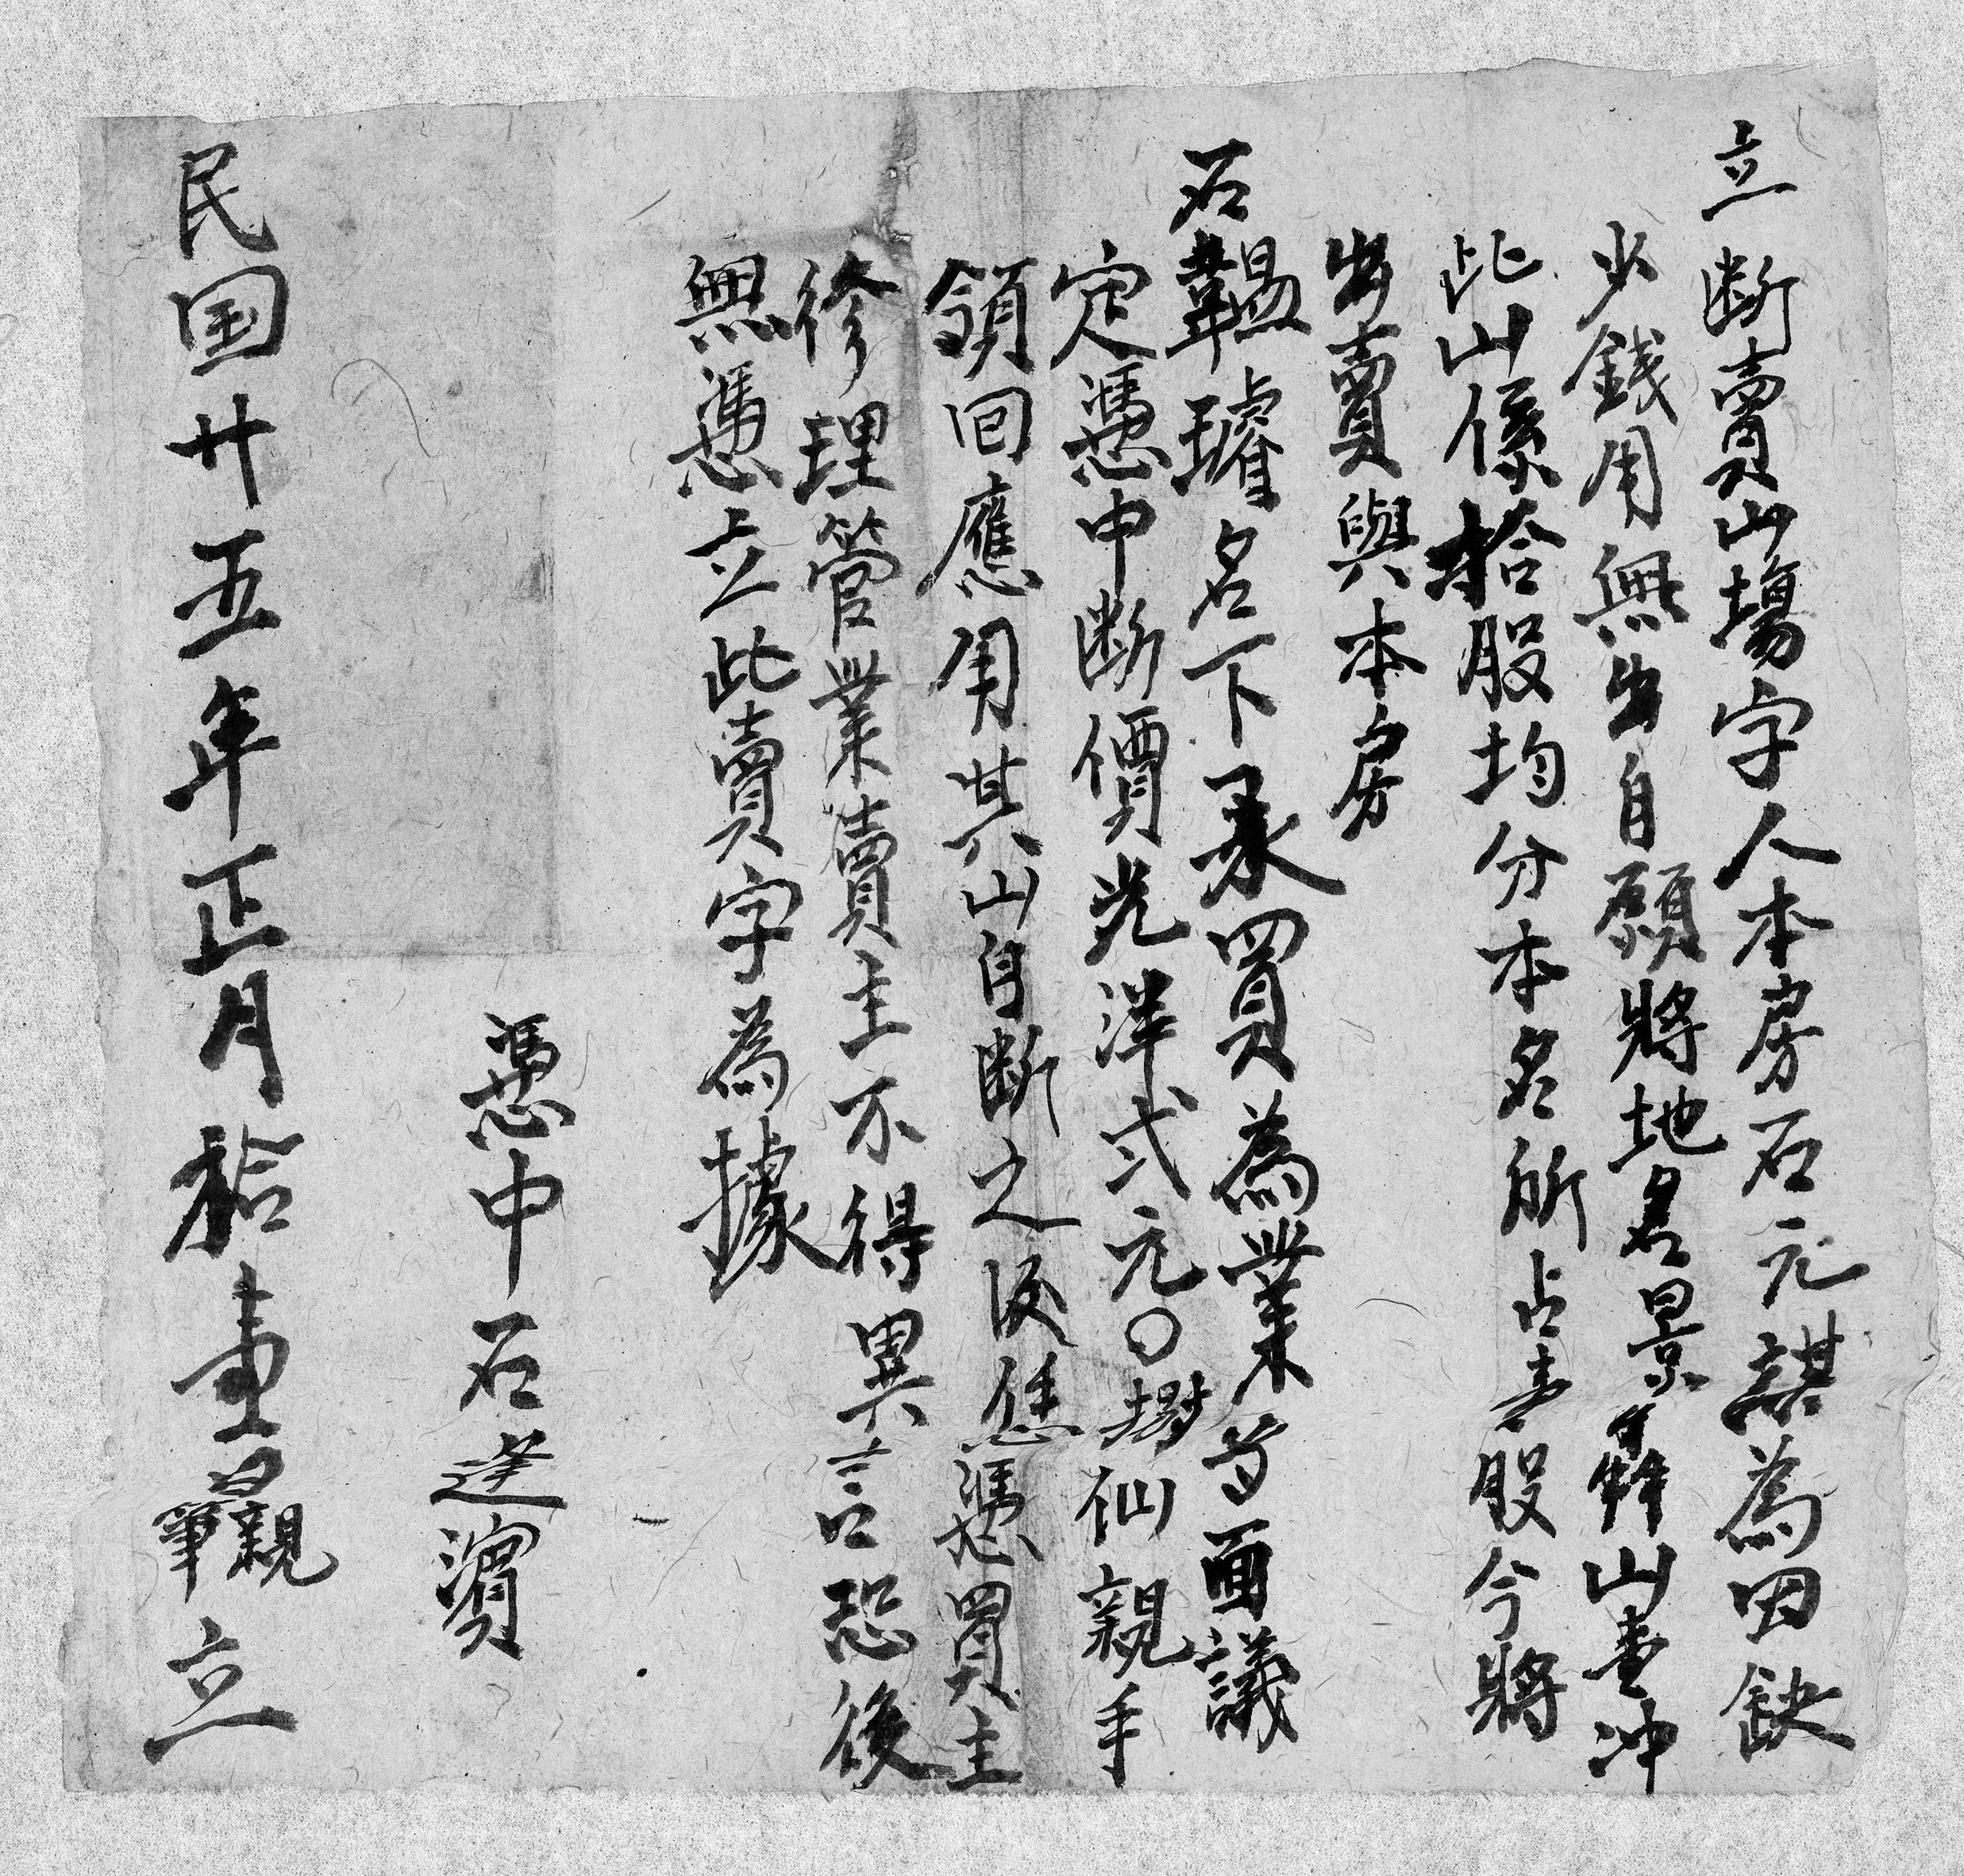 立断賣山塲字人本房石元謀為因缺
少錢用無出自願將地名景 山壹冲
此山係拾股均分本名所占壹股今將
出賣與本房
石韞璿名下承買為業当面議
定憑中断價光洋弍元〇捌仙親手
領回應用其山自断之后恁憑買主
修理管業賣主不得異言恐後
無憑立此賣字為據
憑中石逢濱
民国廿五年正月拾壹日親筆立